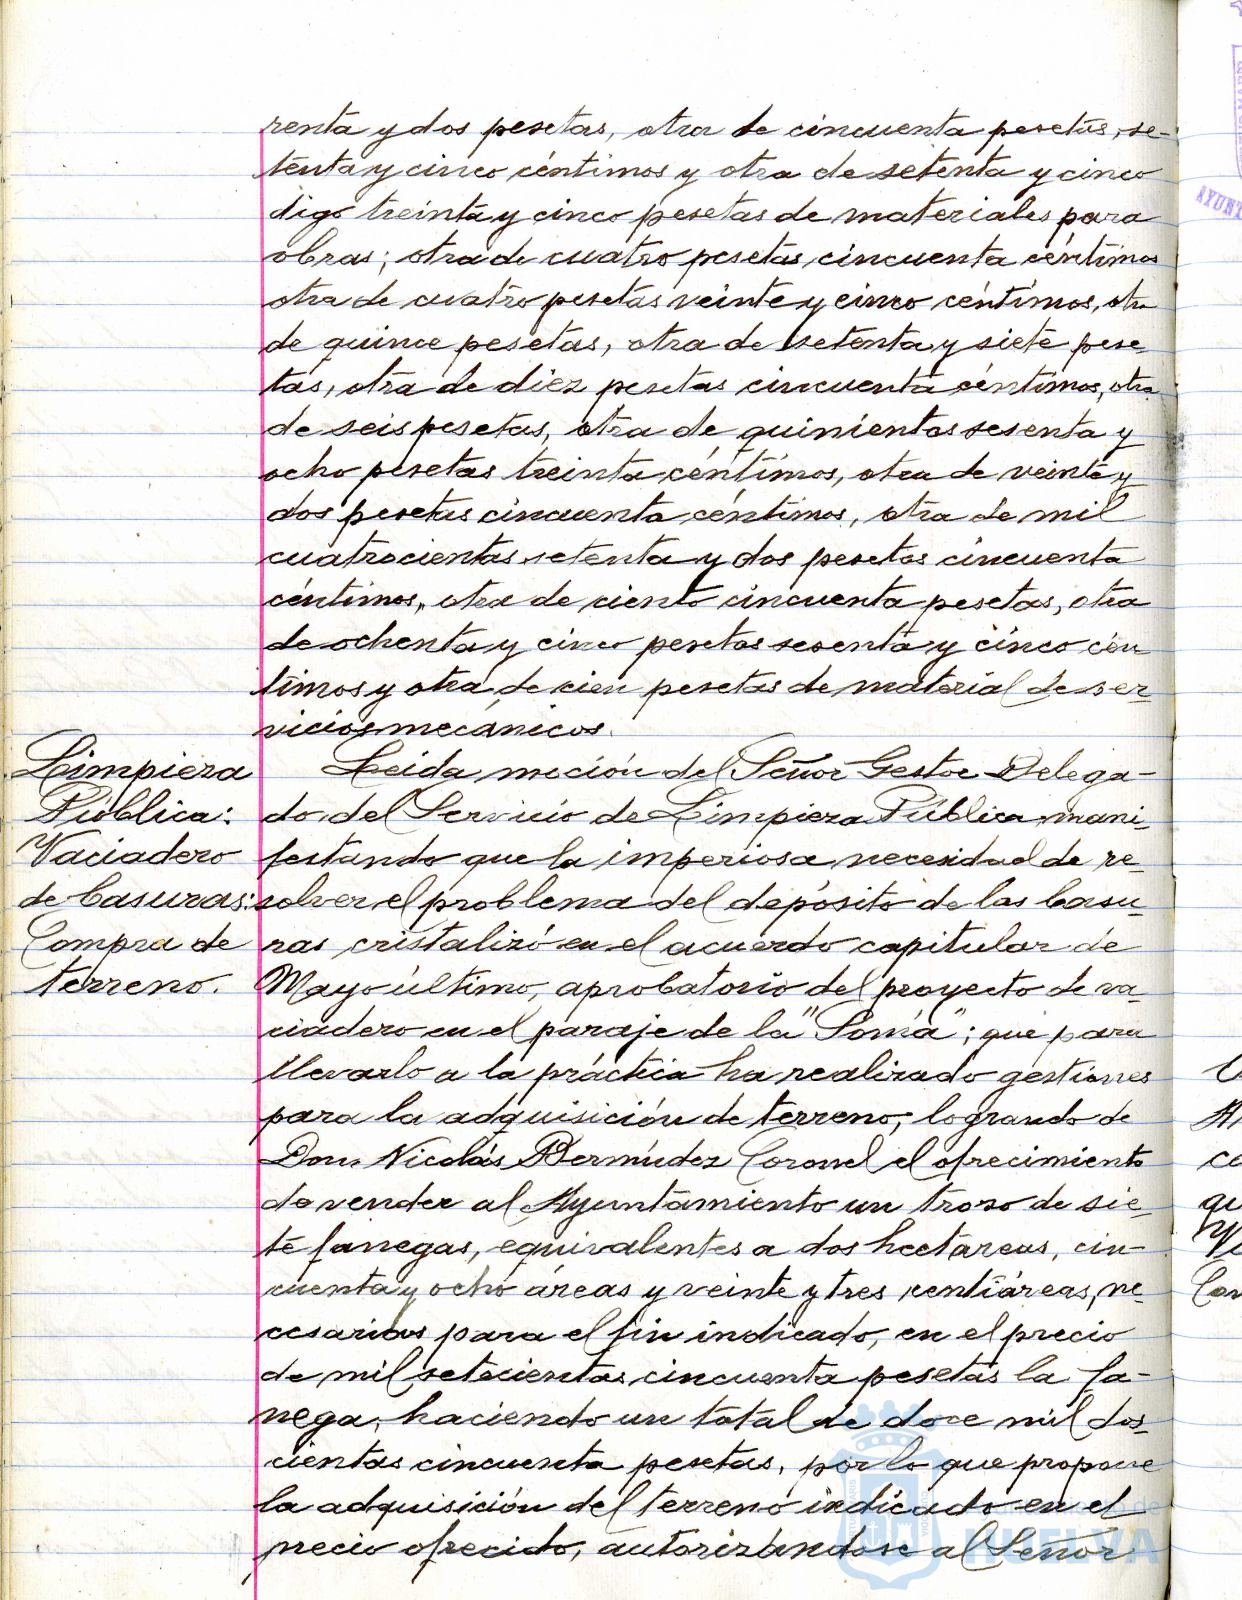 renta y dos pesetas, otra de cincuenta pesetas, se-
tenta y cinco céntimos y otra de setenta y cinco
digo treinta y cinco pesetas de materiales para
obras; otra de cuatro pesetas cincuenta céntimos
otra de cuatro pesetas veinte y cinco céntimos, otra
de quince pesetas, otra de setenta y siete pese-
tas, otra de diez pesetas cincuenta céntimos, otra
de seis pesetas, otra de quinientas sesenta y
ocho pesetas treinta céntimos, otra de veinte y
dos pesetas cincuenta céntimos, otra de mil
cuatrocientas setenta y dos pesetas cincuenta
céntimos, otra de ciento cincuenta pesetas, otra
de ochenta y cinco pesetas sesenta y cinco cén-
timos y otra de cien pesetas de material de ser-
vicios mecánicos.
Limpieza
Pública:
Vaciadero
de basuras:
Compra de
terreno.
Leida moción del Señor Gestor Delega-
do del Servicio de Limpieza Pública mani-
festando que la imperiosa necesidad de re-
solver el problema del depósito de las basu-
ras cristalizó en el acuerdo capitular de
Mayo último, aprobatorio del proyecto de va-
ciadero en el paraje de la "Soma"; que para
llevarlo a la práctica ha realizado gestiones
para la adquisición de terreno, logrando de
Don Nicolás Bermúdez Coronel el ofrecimiento
de vender al Ayuntamiento un trozo de sie-
te fanegas, equivalentes a dos hectáreas, cin-
cuenta y ocho áreas y veinte y tres centiáreas, ne-
cesarias para el fin indicado, en el precio
de mil setecientas cincuenta pesetas la fa-
nega, haciendo un total de doce mil dos-
cientas cincuenta pesetas, por lo que propone
la adquisición del terreno indicado en el
precio ofrecido, autorizándose al Señor
HUELVA